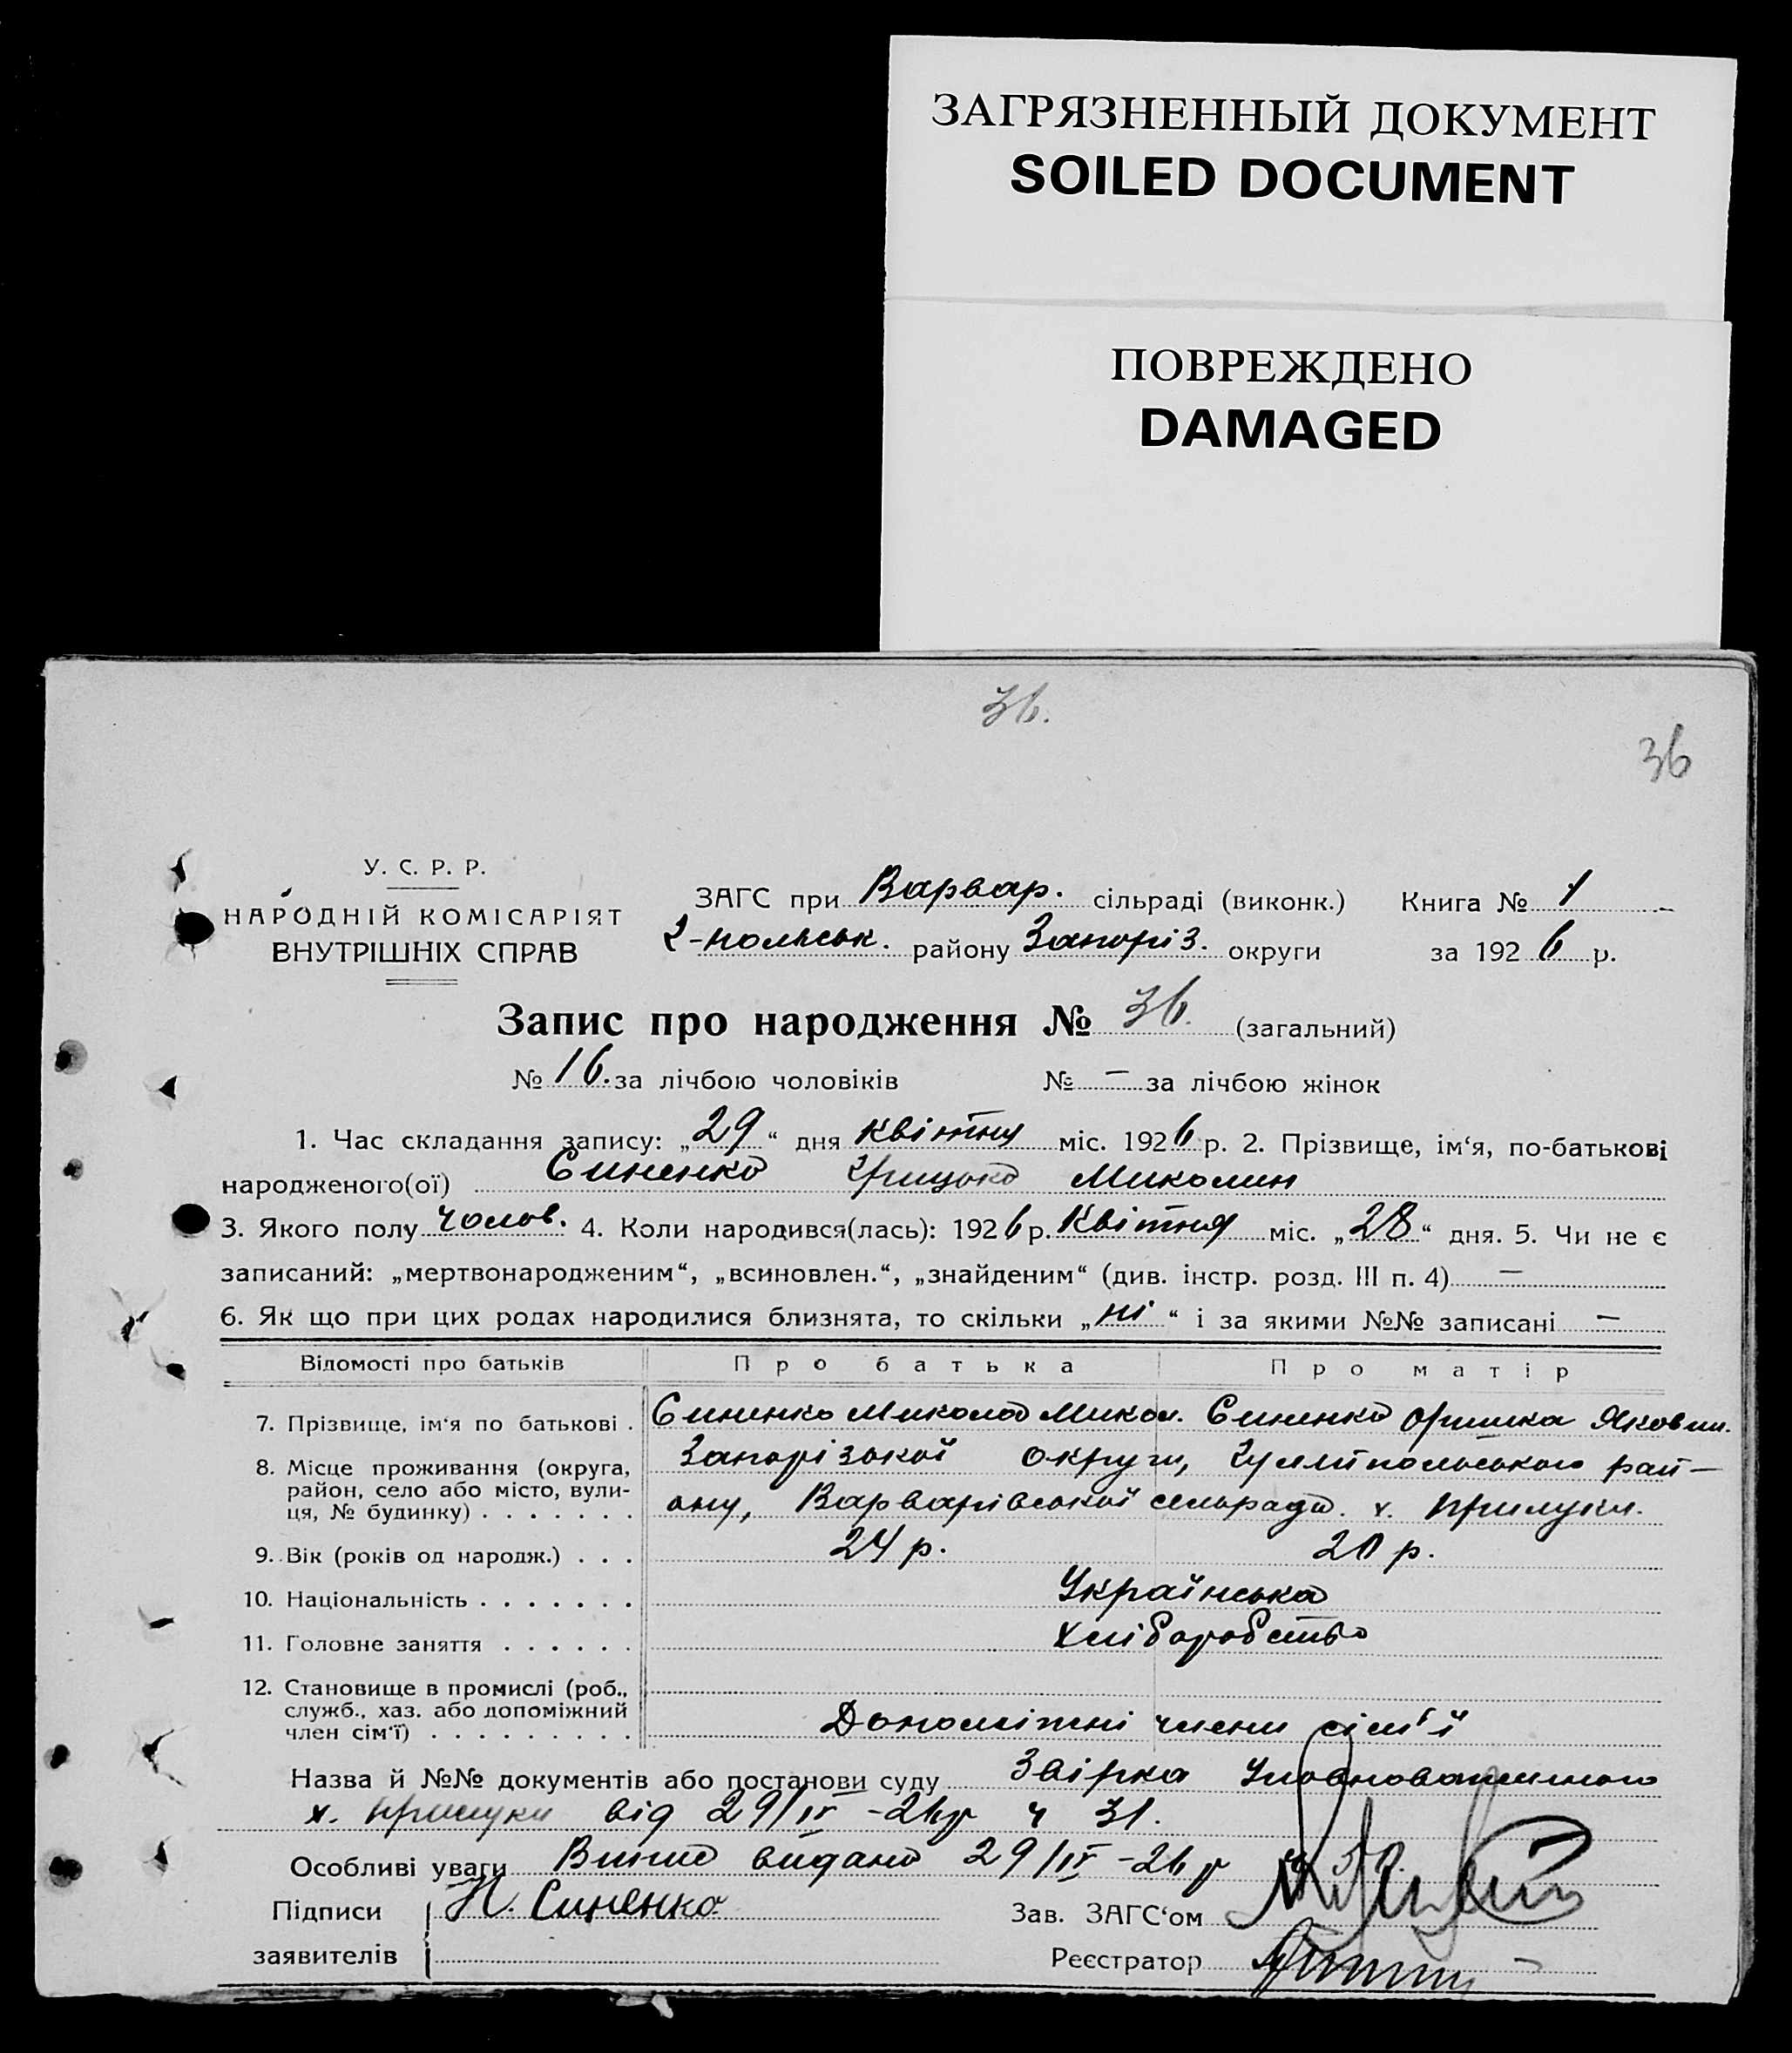 ЗАГРЯЗНЕННЫЙ ДОКУМЕНТ
SOILED DOCUMENT
ПОВРЕЖДЕНО
DAMAGED
36.
36
У. С. Р. Р.
НАРОДНІЙ КОМІСАРІЯТ
ВНУТРІШНІХ СПРАВ
ЗАГС при Варвар. сільраді (виконк.) Книга № 1
Г-польськ. району Запоріз. округи за 1926 р.
Запис про народження № 36. (загальний)
№ 16. за лічбою чоловіків № — за лічбою жінок
1. Час складання запису: „29“ дня квітня міс. 1926 р. 2. Прізвище, ім‘я, по-батькові
народженого(ої) Синенко Грицько Миколин
3. Якого полу чолов. 4. Коли народився(лась): 1926 р. Квітня міс. „28“ дня. 5. Чи не є
записаний: „мертвонародженим“, „всиновлен.“, „знайденим“ (див. інстр. розд. III п. 4) —
6. Як що при цих родах народилися близнята, то скільки „ні“ і за якими №№ записані —
Відомості про батьків Про батька Про матір
7. Прізвище, ім‘я по батькові . Синенко Микола Микол. Синенко Оришка Яковл.
8. Місце проживання (округа, район, село або місто, вулиця, № будинку) . . . . . . . Запорізької округи, Гуляйпольського рай-
ону, Варварівської сільради. х. Прилуки.
9. Вік (років од народж.) . . . 24 р. 20 р.
10. Національність . . . . . . . Українська
11. Головне заняття . . . . . . Хліборобство
12. Становище в промислі (роб., служб., хаз. або допоміжний член сім‘ї) . . . . . . . . . Допоміжні члени сім'ї
Назва й №№ документів або постанови суду Звірка Уповноваженного
х. Прилуки від 29/IV -26 р ч 31.
Особливі уваги Витяг видано 29/IV -26 р
Підписи Н. Синенко Зав. ЗАГС‘ом
заявителів Реєстратор